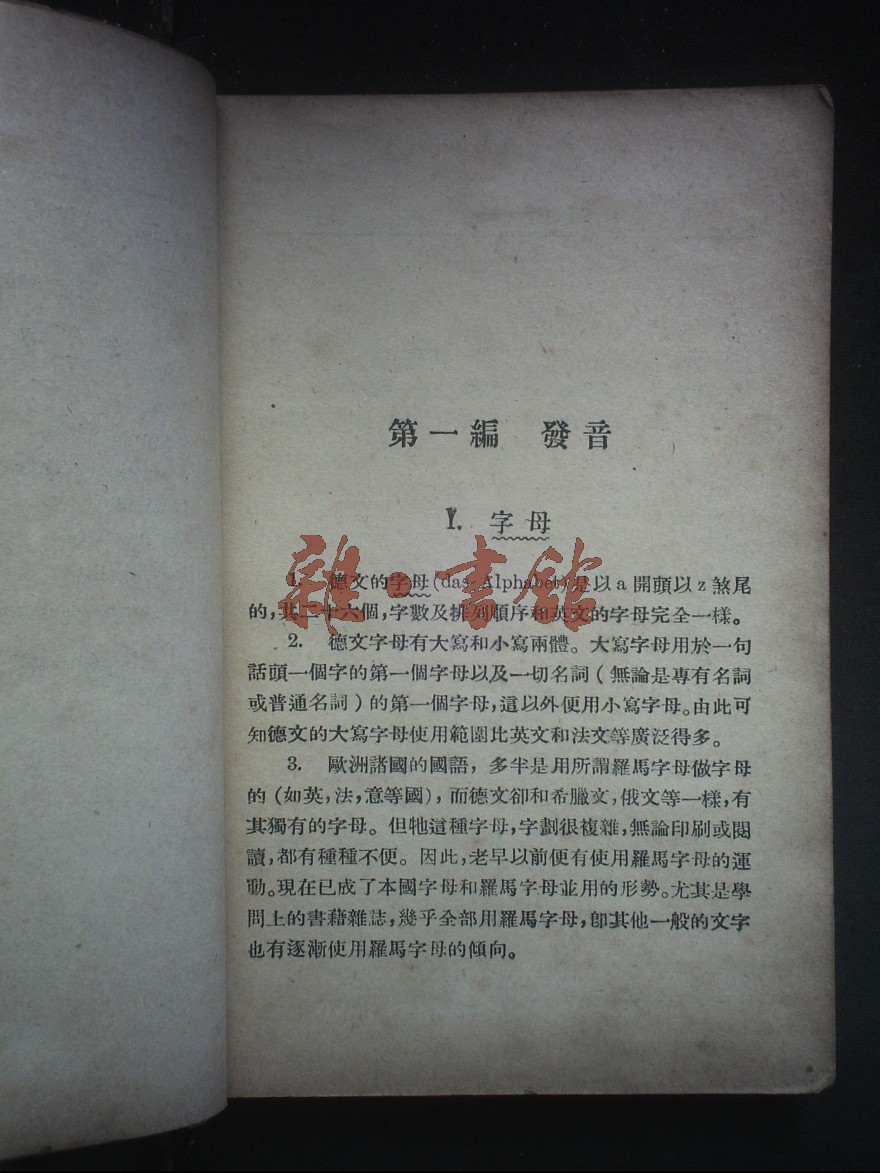 第一編 發音
I. 字母
1. 德文的字母(das Alphabet)是以a開頭以z煞尾
的,其二十六個,字數及排列順序和英文的字母完全一樣。
2. 德文字母有大寫和小寫兩體。大寫字母用於一句
話頭一個字的第一個字母以及一切名詞(無論是專有名詞
或普通名詞)的第一個字母,這以外便用小寫字母。由此可
知德文的大寫字母使用範圍比英文和法文等廣泛得多。
3. 歐洲諸國的國語,多半是用所謂羅馬字母做字母
的(如英,法,意等國),而德文卻和希臘文,俄文等一樣,有
其獨有的字母。但牠這種字母,字劃很複雜,無論印刷或閱
讀,都有種種不便。因此,老早以前便有使用羅馬字母的運
動。現在已成了本國字母和羅馬字母並用的形勢。尤其是學
問上的書藉雜誌,幾乎全部用羅馬字母,卽其他一般的文字
也有逐漸使用羅馬字母的傾向。
雜·書館